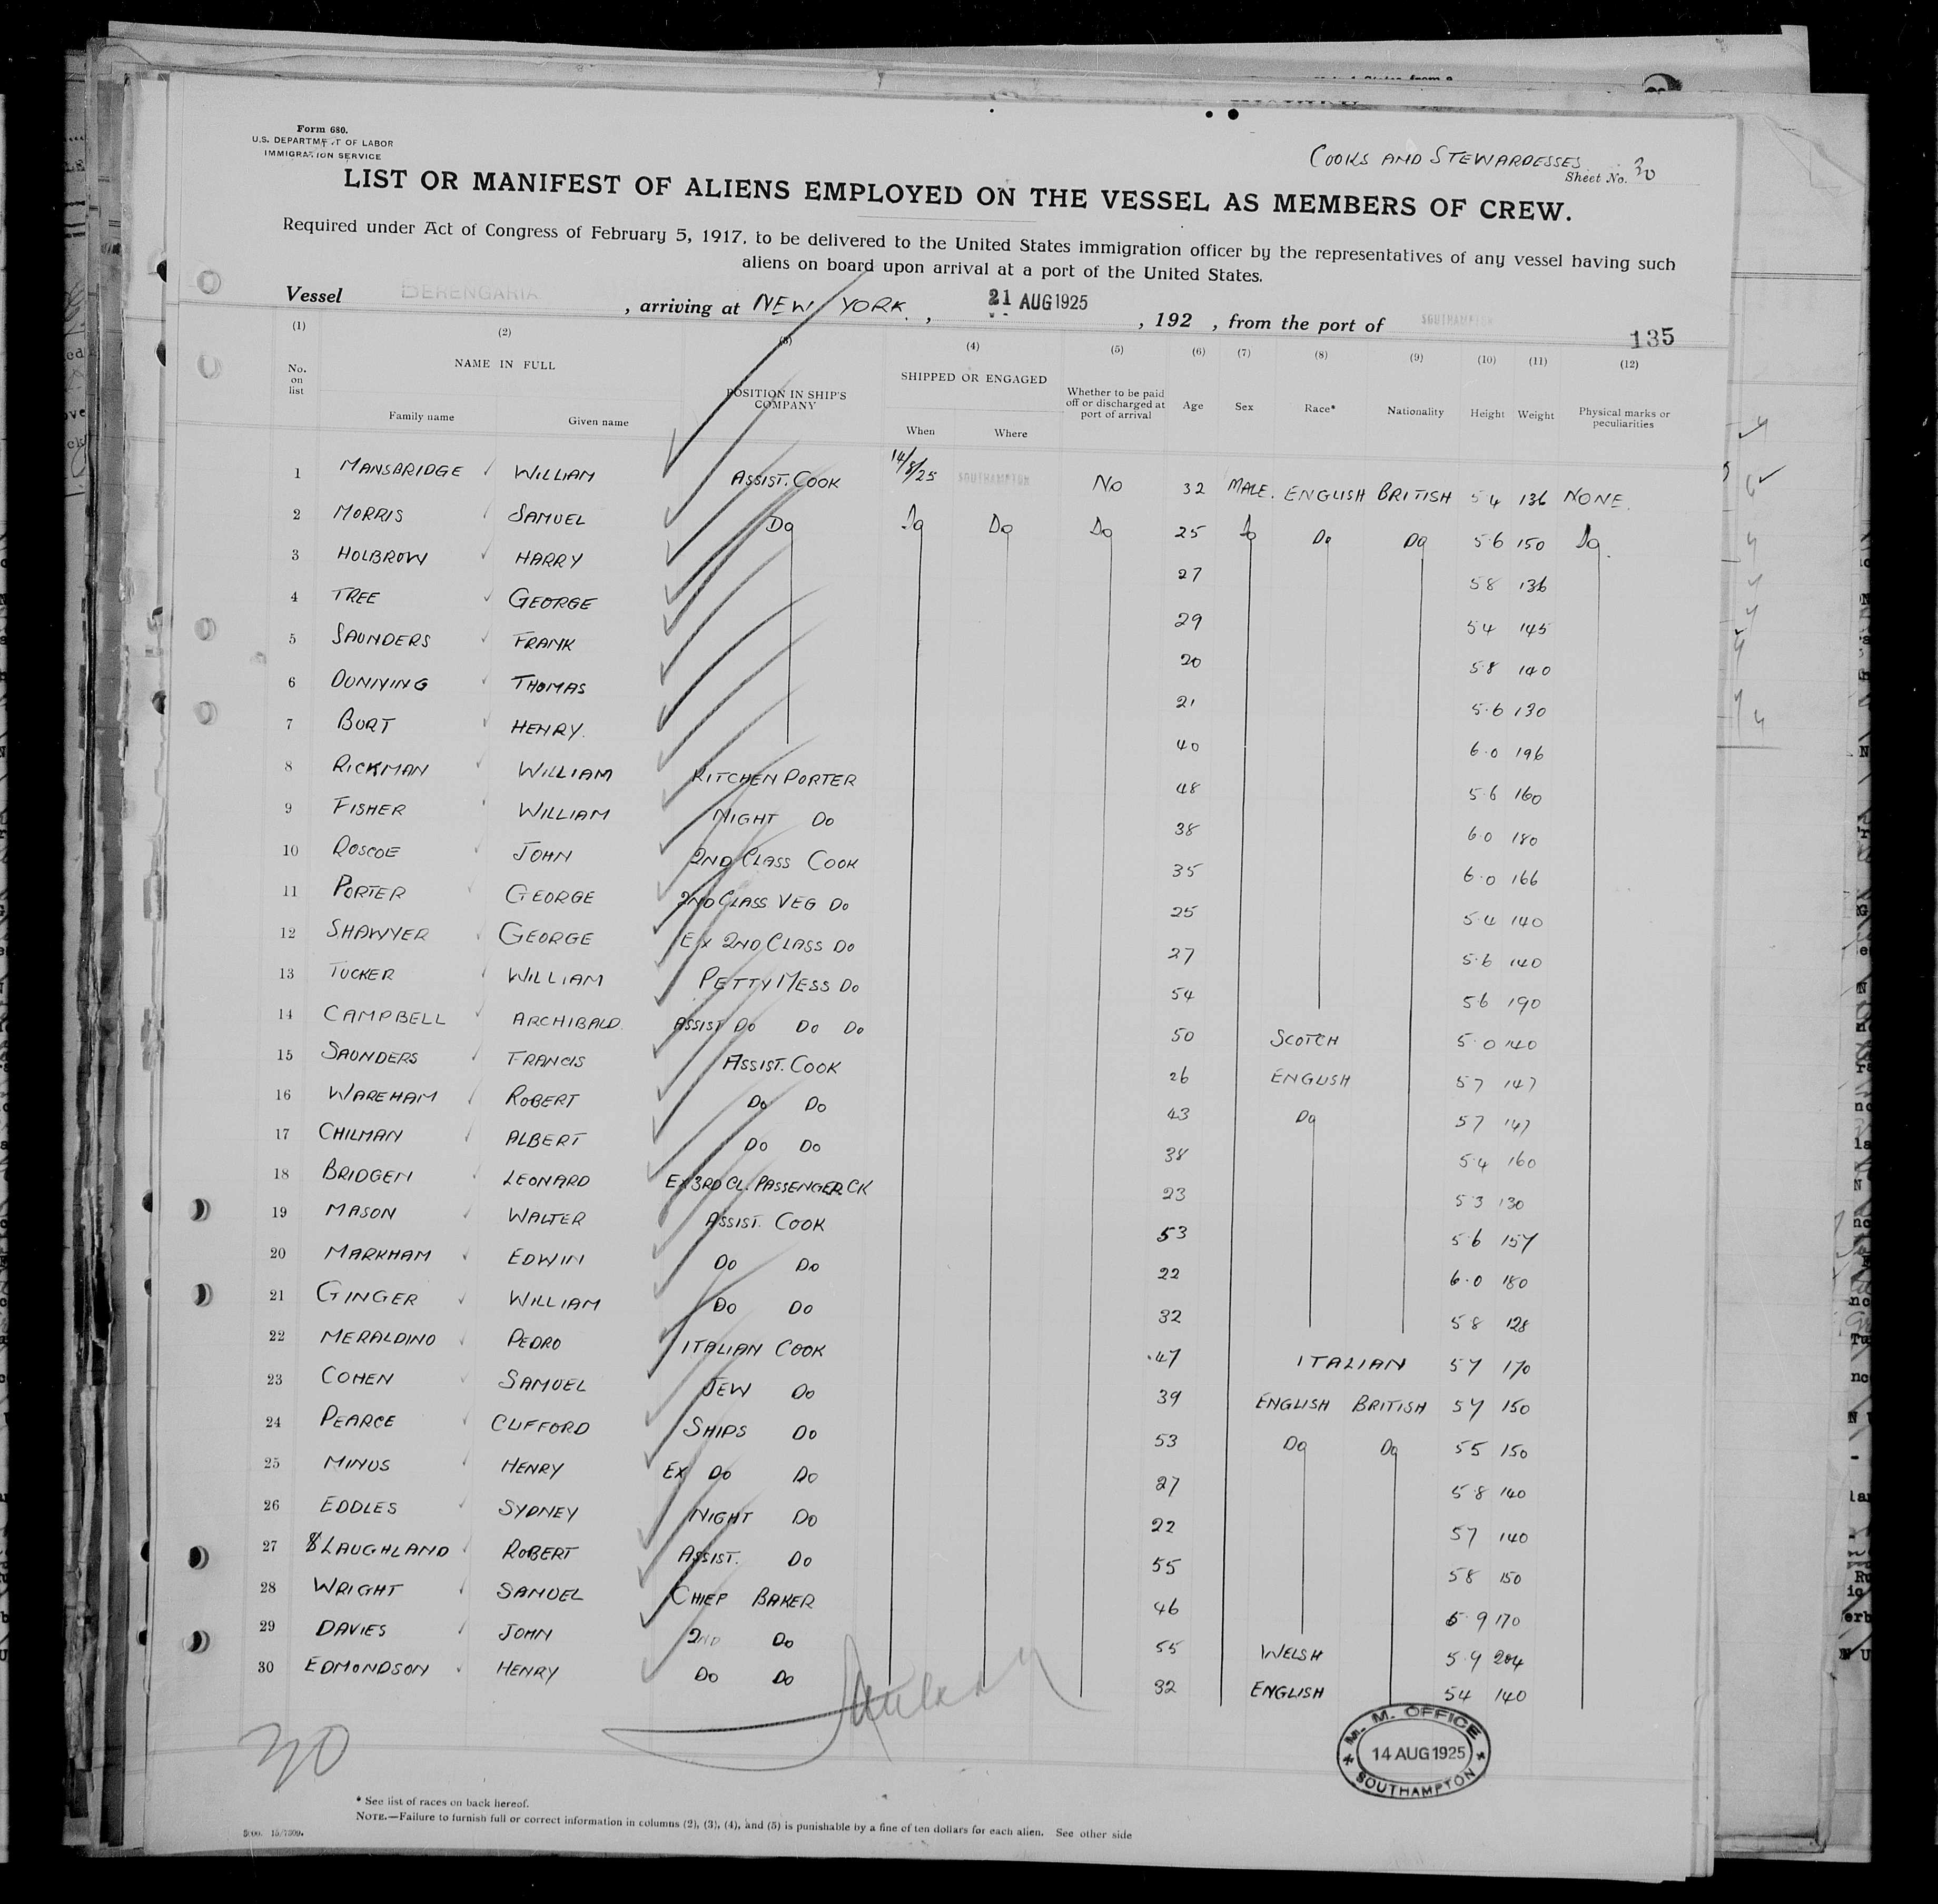 Form 680.
U.S. DEPARTMENT OF LABOR
IMMIGRATION SERVICE
COOKS AND STEWARDESSES
Sheet No. 30
LIST OR MANIFEST OF ALIENS EMPLOYED ON THE VESSEL AS MEMBERS OF CREW.
Required under Act of Congress of February 5, 1917, to be delivered to the United States immigration officer by the representatives of any vessel having such
aliens on board upon arrival at a port of the United States.
Vessel BERENGARIA, arriving at NEW YORK, 21 AUG 1925, 192 , from the port of SOUTHAMPTON
135
(1) (2) (3) (4) (5) (6) (7) (8) (9) (10) (11) (12)
No. on list NAME IN FULL Family name Given name POSITION IN SHIP'S COMPANY SHIPPED OR ENGAGED When Where Whether to be paid off or discharged at port of arrival Age Sex Race* Nationality Height Weight Physical marks or peculiarities
1 MANSBRIDGE WILLIAM ASSIST. COOK 14/8/25 SOUTHAMPTON NO 32 MALE. ENGLISH BRITISH 5 4 136 NONE.
2 MORRIS SAMUEL Do Do Do Do 25 Do Do Do 5·6 150 Do.
3 HOLBROW HARRY 27 5 8 136
4 TREE GEORGE 29 5 4 145
5 SAUNDERS FRANK 20 5·8 140
6 DUNNING THOMAS 21 5·6 130
7 BURT HENRY. 40 6·0 196
8 RICKMAN WILLIAM KITCHEN PORTER 48 5·6 160
9 FISHER WILLIAM NIGHT Do 38 6·0 180
10 ROSCOE JOHN 2ND CLASS COOK 35 6·0 166
11 PORTER GEORGE 2ND CLASS VEG Do 25 5·4 140
12 SHAWYER GEORGE EX 2ND CLASS Do 27 5·6 140
13 TUCKER WILLIAM PETTY MESS Do 54 5·6 190
14 CAMPBELL ARCHIBALD. ASSIST Do Do Do 50 SCOTCH 5·0 140
15 SAUNDERS FRANCIS ASSIST. COOK 26 ENGLISH 5 7 147
16 WAREHAM ROBERT Do Do 43 Do 5 7 147
17 CHILMAN ALBERT Do Do 38 5·4 160
18 BRIDGEN LEONARD EX 3RD CL. PASSENGER CK 23 5·3 130
19 MASON WALTER ASSIST. COOK 53 5·6 154
20 MARKHAM EDWIN Do Do 22 6·0 180
21 GINGER WILLIAM Do Do 32 5 8 128
22 MERALDINO PEDRO ITALIAN COOK 47 ITALIAN 5 7 170
23 COHEN SAMUEL JEW Do 39 ENGLISH BRITISH 5 7 150
24 PEARCE CLIFFORD SHIPS Do 53 Do Do 5 5 150
25 MINUS HENRY EX Do Do 27 5·8 140
26 EDDLES SYDNEY NIGHT Do 22 5 7 140
27 LAUGHLAND ROBERT ASSIST. Do 55 5 8 150
28 WRIGHT SAMUEL CHIEF BAKER 46 5·9 170
29 DAVIES JOHN 2ND Do 55 WELSH 5·9 204
30 EDMONDSON HENRY Do Do 32 ENGLISH 5 4 140
30
M. M. OFFICE
14 AUG 1925
SOUTHAMPTON
* See list of races on back hereof.
NOTE.—Failure to furnish full or correct information in columns (2), (3), (4), and (5) is punishable by a fine of ten dollars for each alien. See other side